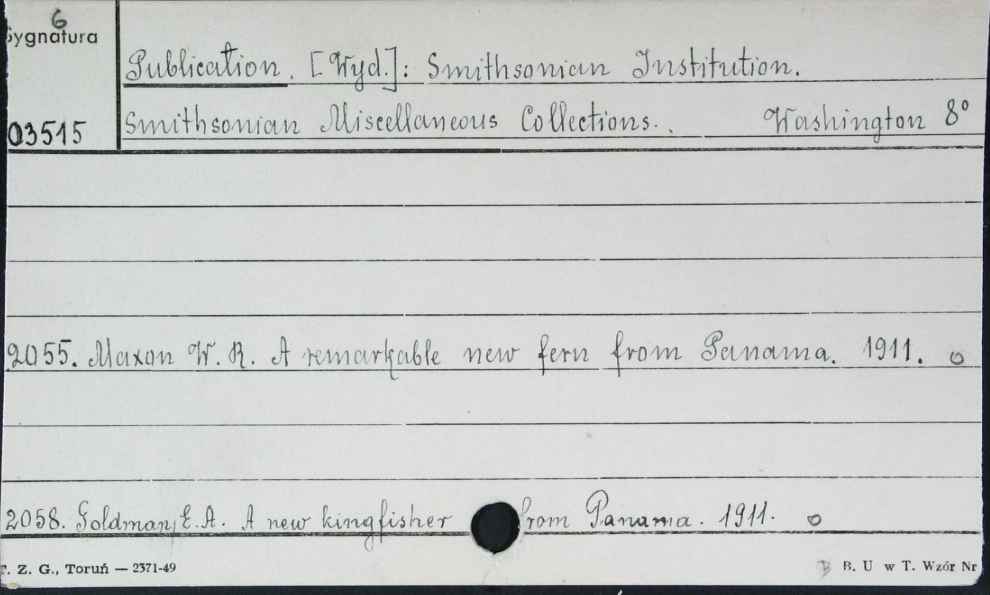 6
Sygnatura
Publication. [Wyd.]: Smithsonian Institution.
03515
Smithsonian Miscellaneous Collections. . Washington 8°
2055. Maxon W. R. A remarkable new fern from Panama. 1911. o
2058. Goldman, E. A. A new kingfisher from Panama. 1911. o
P. Z. G., Toruń — 2371-49
B. U w T. Wzór Nr